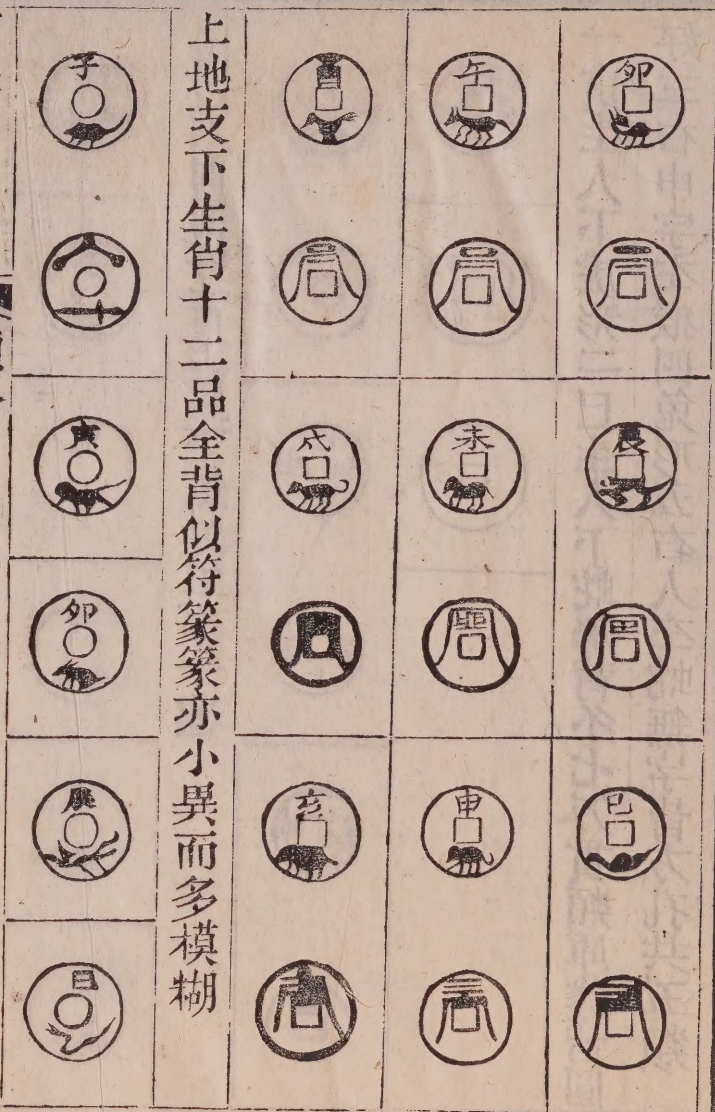 卯
辰
巳
午
未
申
酉
戌
亥
上地支下生肖十二品全背似符篆篆亦小異而多模糊
子
寅
卯
辰
巳